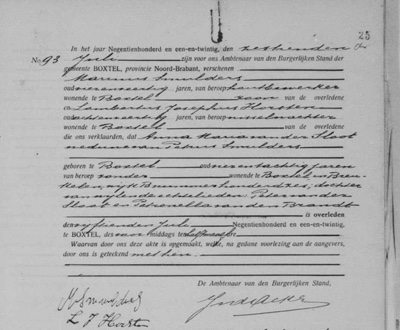 25
In het jaar Negentienhonderd en een-en-twintig, den zestienden
No. 93 Juli zijn voor ons Ambtenaar van den Burgerlijken Stand der
gemeente BOXTEL, provincie Noord-Brabant, verschenen
Marinus Smulders
oud jaren, van beroep houtbewerker
wonende te Boxtel zoon van de overledene
en Lambertus Josephus Horsten
oud jaren, van beroep
wonende te Boxtel van de overledene
die ons verklaarden, dat Anna Maria van der Sloot
weduwe van Petrus Smulders
geboren te Boxtel oud vierentachtig jaren
van beroep zonder wonende te Boxtel in
dochter
van wijlen de echtelieden Peter van der
Sloot en Petronella van den Brandt
is overleden
den Juli Negentienhonderd en een-en-twintig,
te BOXTEL, des middags te
Waarvan door ons deze akte is opgemaakt, welke, na gedane voorlezing aan de aangevers,
door ons is geteekend met hen.
De Ambtenaar van den Burgerlijken Stand,
M. Smulders
L. J. Horsten